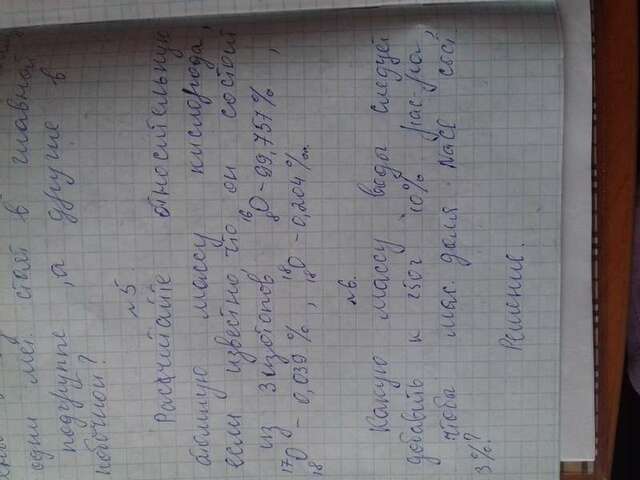 одни мет. стоят в главной
подгруппе, а другие в
побочной?
№5.
Рассчитайте относительную
атомную массу кислорода,
если известно что он состоит
из 3 изотопов ¹⁶₈O - 99,757%,
¹⁷₁₈O - 0,039%, ¹⁸₁₈O - 0,204%.
№6.
Какую массу воды следует
добавить к 250г 10% рас-ра,
чтобы мас. доля NaCl сост.
3%?
Решение.